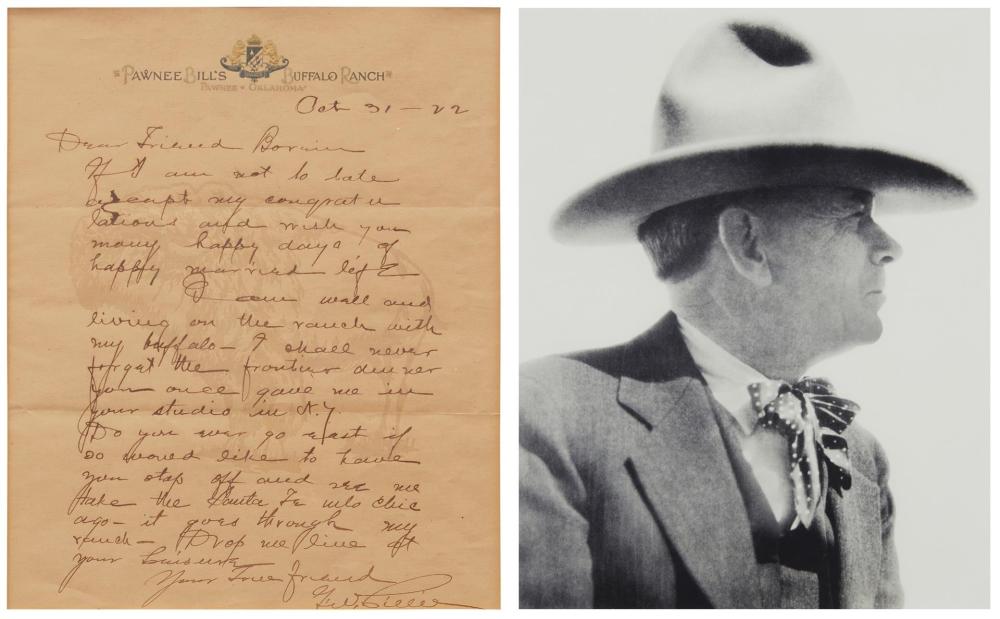 PAWNEE BILL'S BUFFALO RANCH
PAWNEE • OKLAHOMA
Oct 31 - 22
Dear Friend Borein
If I am not to late
accept my congratu
lations and wish you
many happy days of
happy married life
I am well and
living on the ranch with
my buffalo - I shall never
forget the frontier dinner
you once gave me in
your studio in N.Y.
Do you ever go east if
so would like to have
you stop off and see me
take the Santa Fe into Chic
ago - it goes through my
ranch - Drop me line at
your Leisure
Your True friend
G.W. Lillie